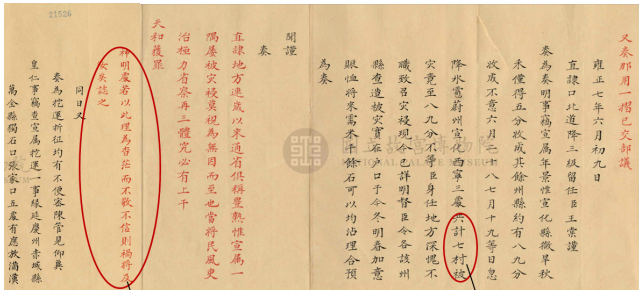 又奏那用一摺已交部議
雍正七年六月初九日
直隸口北道降三級留任臣王棠謹
奏為奏明事竊查宣屬年景惟宣化縣微旱秋
禾僅得五分收成其餘州縣約有八九分
收成不意六月二十八七月十九等日忽
降氷雹蔚州宣化西寧三處共計七村被
災竟至八九分不等臣身任地方深愧不
職致召災祲現今已詳明督臣令各該州
縣查造被災實在口于今冬明春加意
賑恤將來需米千餘石可以均沾理合預
為奏
聞謹
奏
直隸地方連歲以來通省俱稱豐熟惟宣屬一
隅屢被災祲莫視為無因而至也當將民風吏
治極力省察再三體究必有上干
天和獲罪
神明處若以此理為杳茫而不敬不信則禍將及
汝矣誌之
同日又
奏為挖運折征均有不便客陳管見仰冀
皇仁事竊查宣屬挖運一事緣延慶州赤城縣
萬全縣獨石口張家口五處有應放滿漢
21526